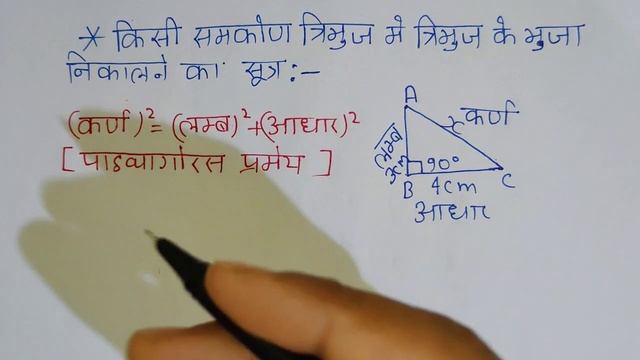 * किसी समकोण त्रिभुज मे त्रिभुज के भुजा
निकालने का सूत्र :-
(कर्ण)² = (लम्ब)² + (आधार)²
[ पाइथागोरस प्रमेय ]
A
x कर्ण
लम्ब
3cm
90°
B 4cm C
आधार